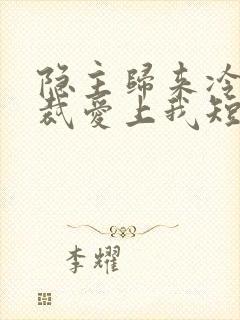 隐主歸来冷
裁愛上我短
李耀